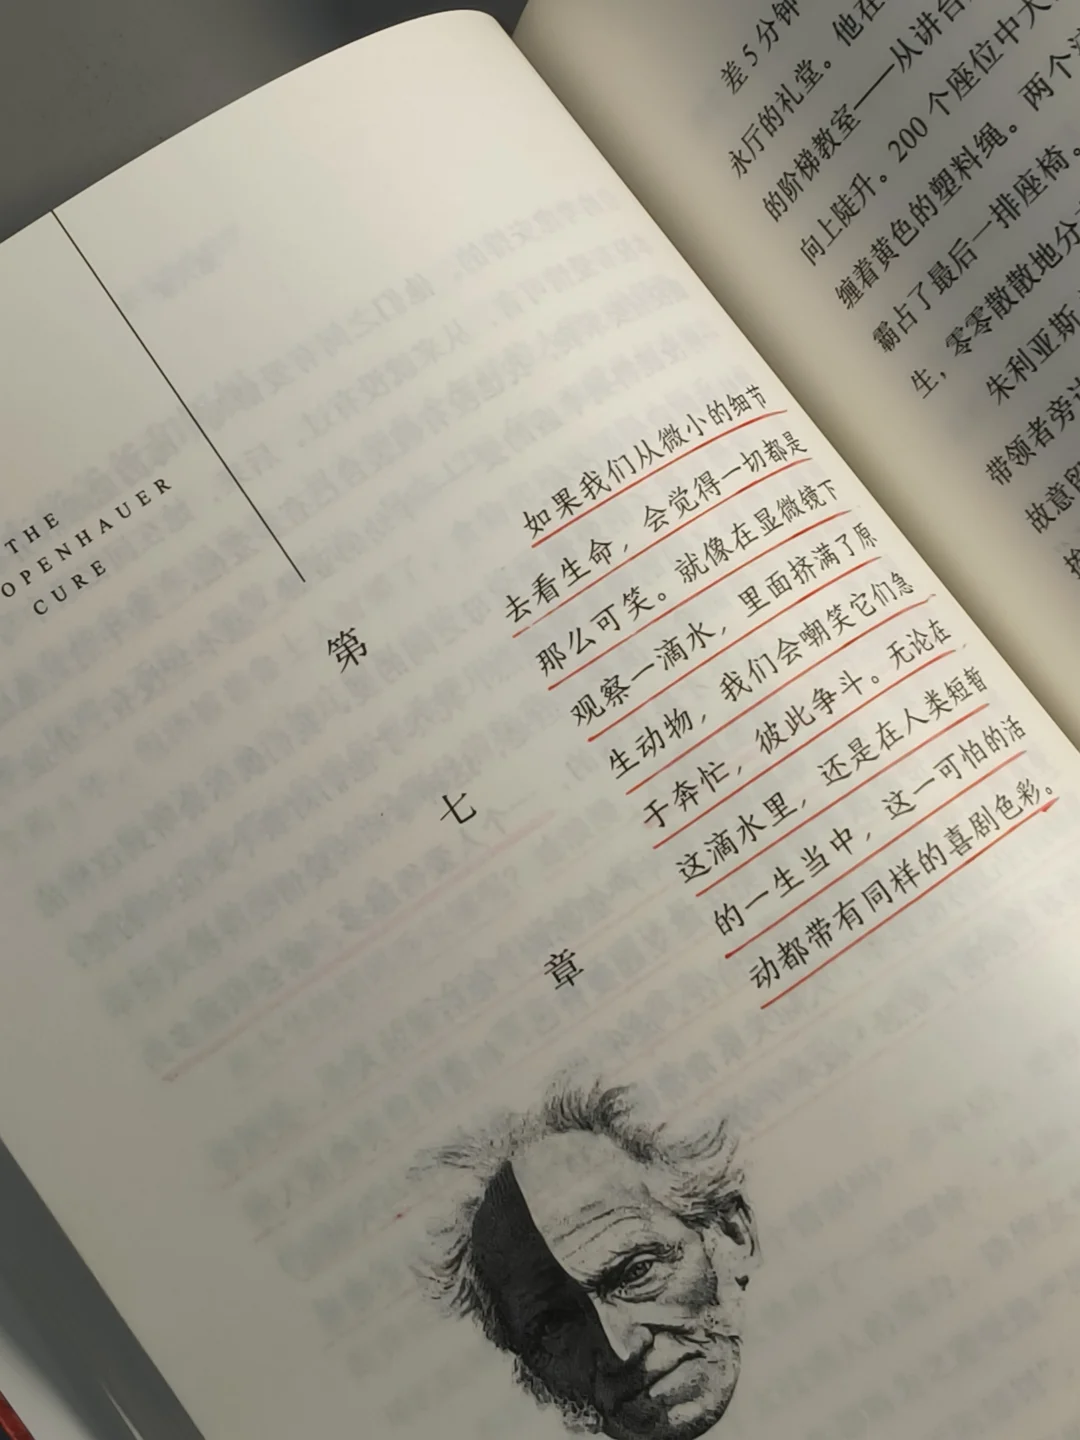 THE
OPENHAUER
CURE
第
七
章
如果我们从微小的细节
去看生命，会觉得一切都是
那么可笑。就像在显微镜下
观察一滴水，里面挤满了原
生动物，我们会嘲笑它们急
于奔忙，彼此争斗。无论在
这滴水里，还是在人类短暂
的一生当中，这一可怕的活
动都带有同样的喜剧色彩。
差5分钟
永厅的礼堂。他在
的阶梯教室——从讲台
向上陡升。200个座位中大
缠着黄色的塑料绳。两个
霸占了最后一排座椅。
生，零零散散地分
朱利亚斯
带领者旁边
故意留